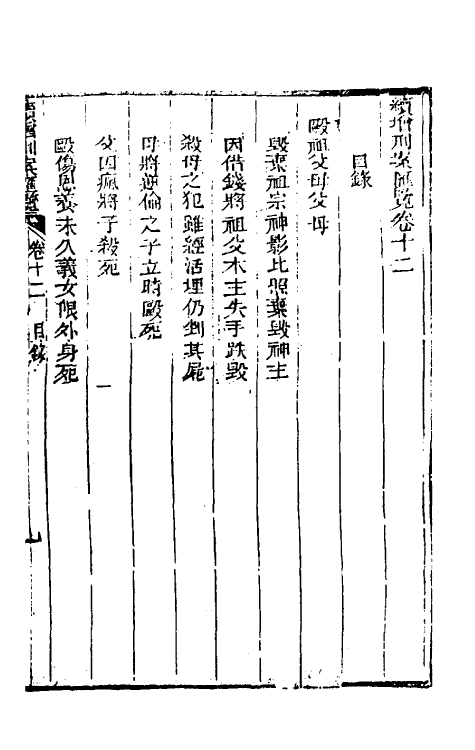 續增刑案匯覽卷十二
目錄
毆祖父母父母
毀棄祖宗神影比照棄毀神主
因借錢將祖父木主失手跌毀
殺母之犯雖經活埋仍剉其屍
母將逆倫之子立時毆死
父因瘋將子殺死
毆傷恩養未久義女限外身死
續增刑案匯覽 卷十二 目錄